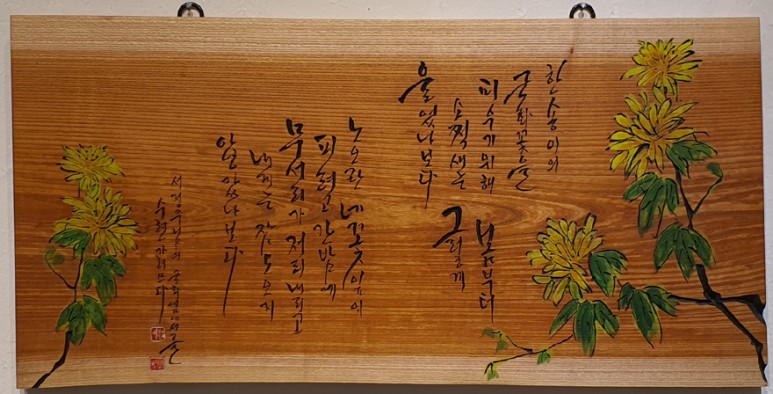 한송이의
국화꽃을
피우기위해 봄부터
소쩍새는 그렇게
울었나보다
노오란 네꽃잎이
피려고 간밤에
무서리가 저리 내리고
내게는 잠도 오지
않았나보다
서정주님의 국화옆에서 글